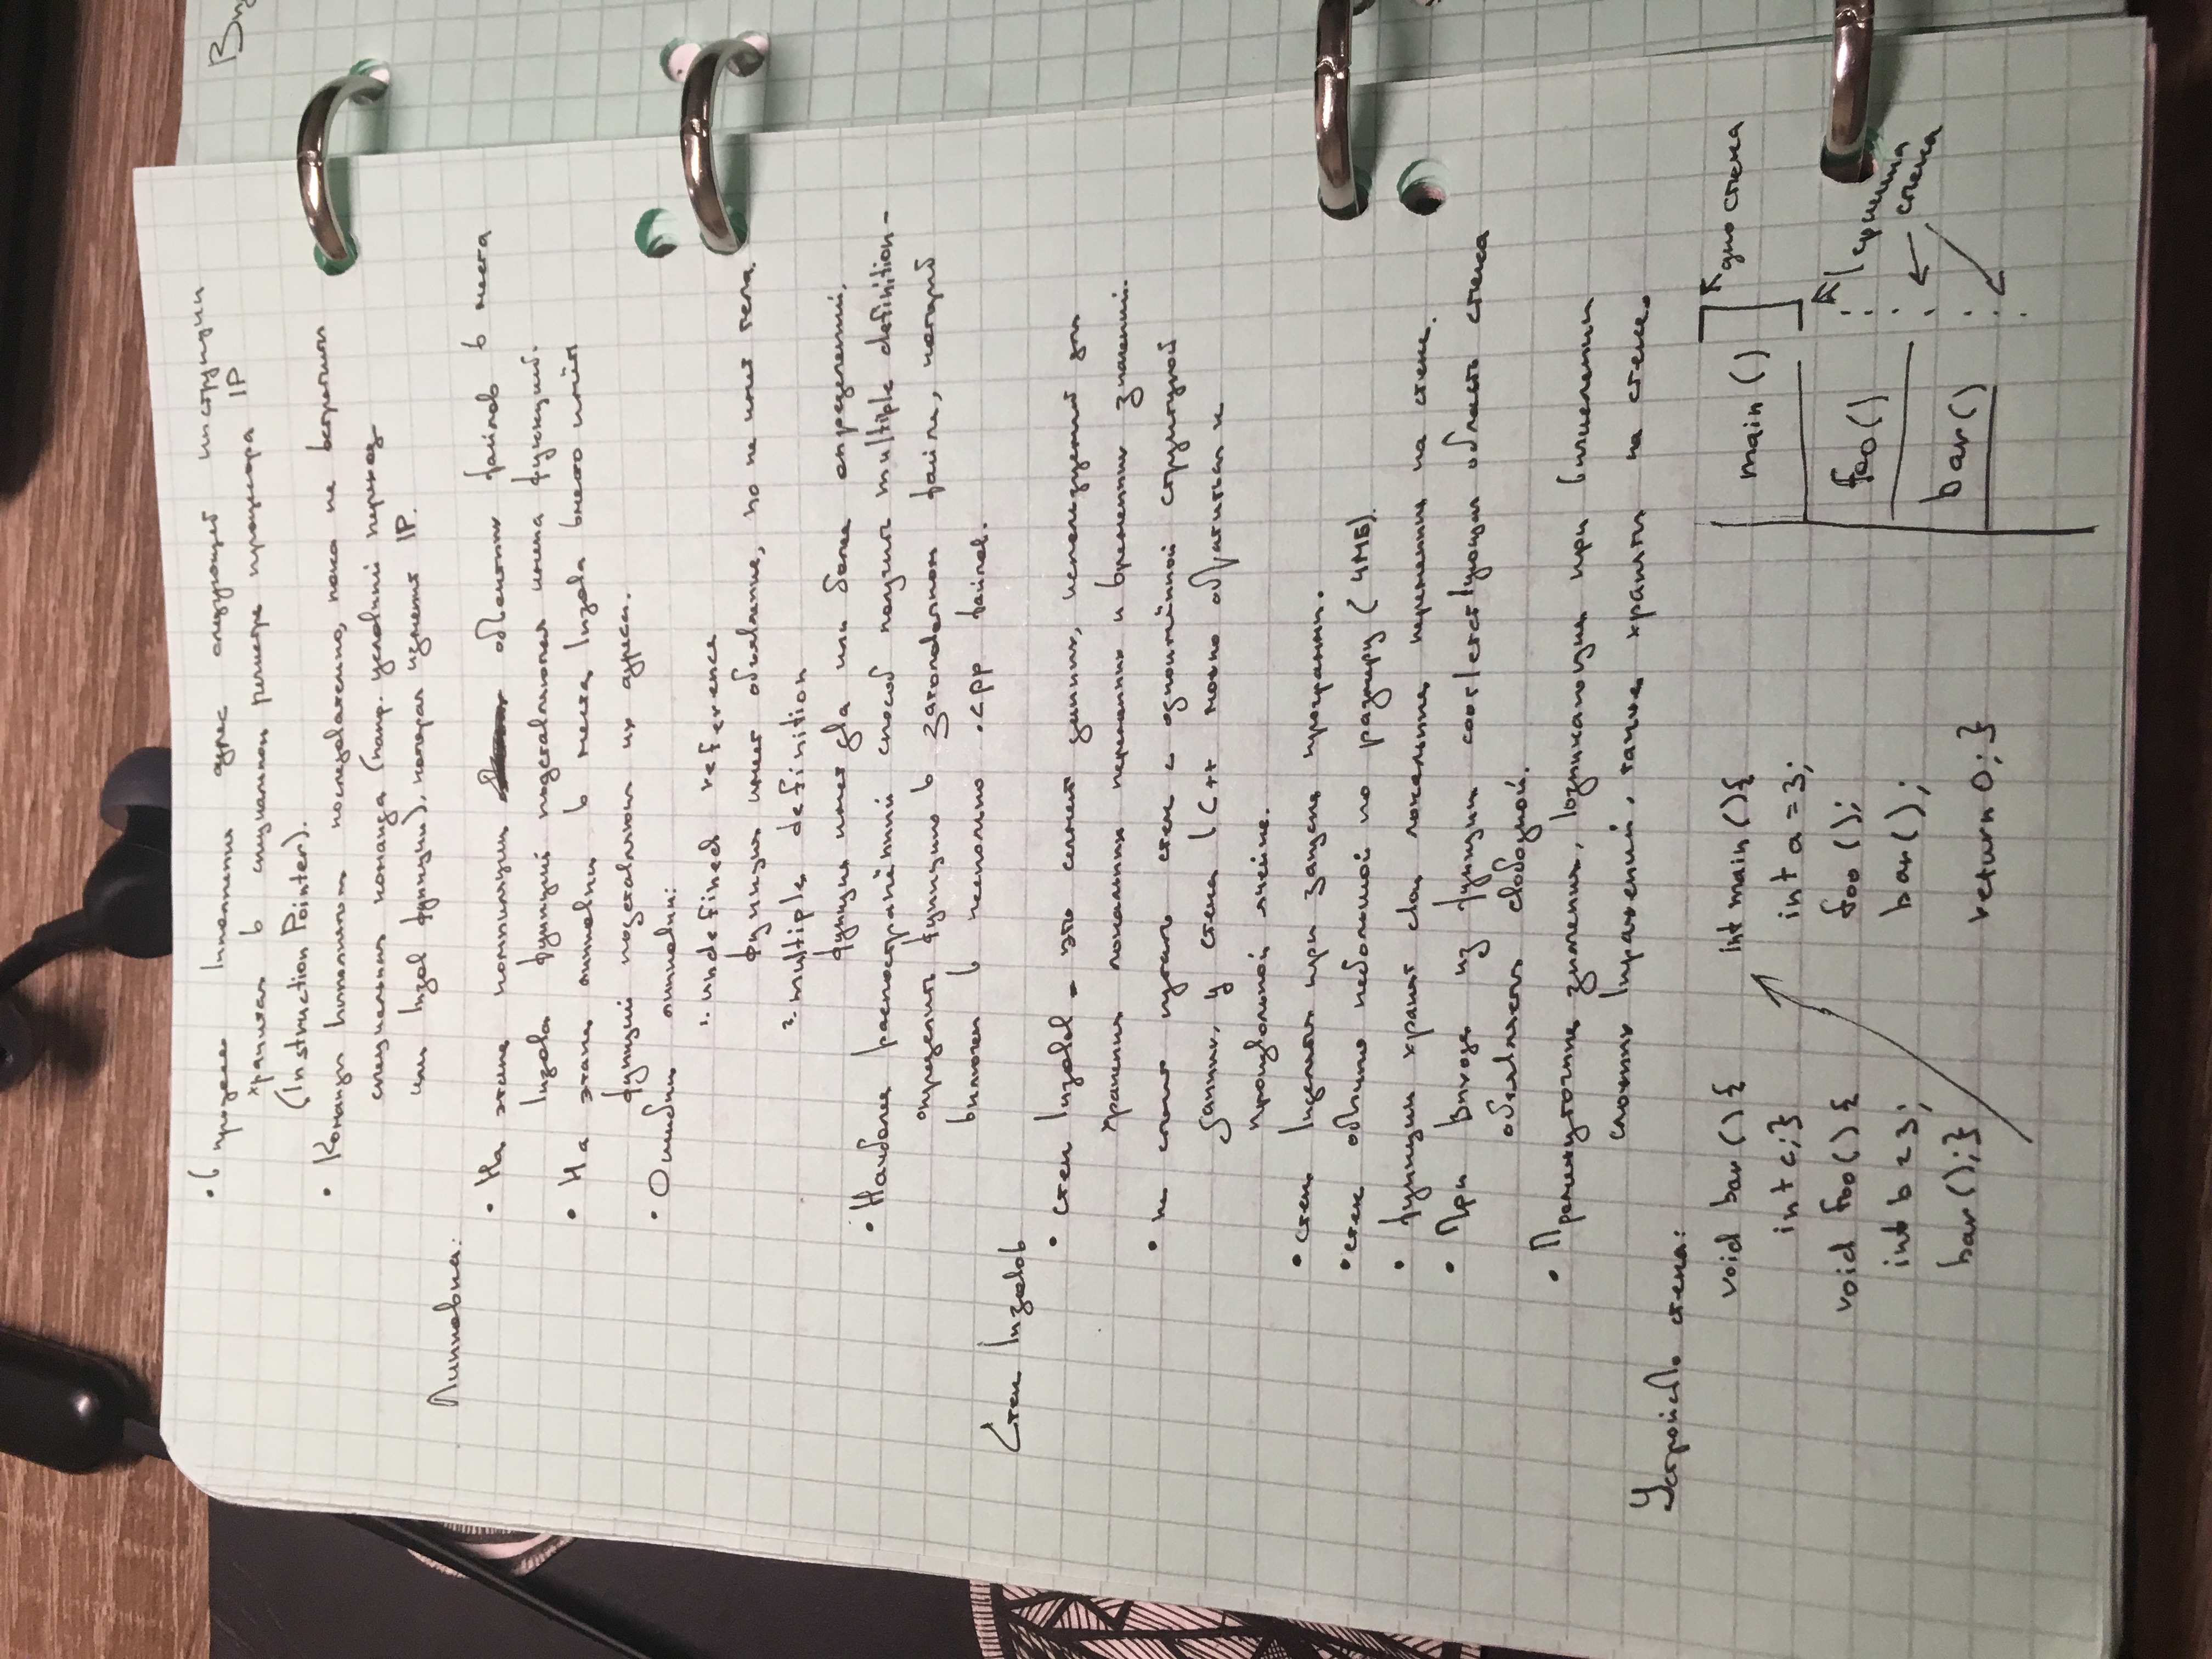 • В процессе выполнения адрес следующей инструкции
хранится в специальном регистре процессора IP
(Instruction Pointer).
• Команды выполняются последовательно, пока не встретится
специальная команда (напр. условный переход
или вызов функции), которая изменит IP.
Линковка:
• На этапе компиляции объектных файлов в места
вызова функций подставляются имена функций.
• На этапе линковки в места вызова вместо имён
функций подставляются их адреса.
• Ошибки линковки:
1. undefined reference
функция имеет объявление, но не имеет тела.
2. multiple definition
функция имеет два или более определений.
• Наиболее распространённый способ получить multiple definition -
определить функцию в заголовочном файле, который
включен в несколько .cpp файлов.
Стек вызовов
• стек вызовов - это сегмент данных, используемый для
хранения локальных переменных и временных значений.
• не стоит путать стек с одноимённой структурой
данных, у стека в C++ можно обратиться к
произвольной ячейке.
• стек выделяется при запуске программы.
• стек обычно небольшой по размеру (4МБ).
• функции хранят свои локальные переменные на стеке.
• При выходе из функции соответствующая область стека
объявляется свободной.
• Промежуточные значения, возникающие при вычислении
сложных выражений, также хранятся на стеке.
Устройство стека:
void bar () {
int c; }
void foo() {
int b = 3;
bar(); }
int main () {
int a = 3;
foo ();
bar();
return 0; }
main ()
foo()
bar()
дно стека
вершина
стека